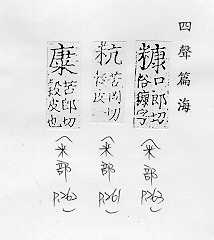 四聲篇海
糠 口郎切
俗穅字
(米部 P.263)
粇 苦岡切
穀皮
(米部 P.261)
苦郎切
穀皮也
(米部 P.262)